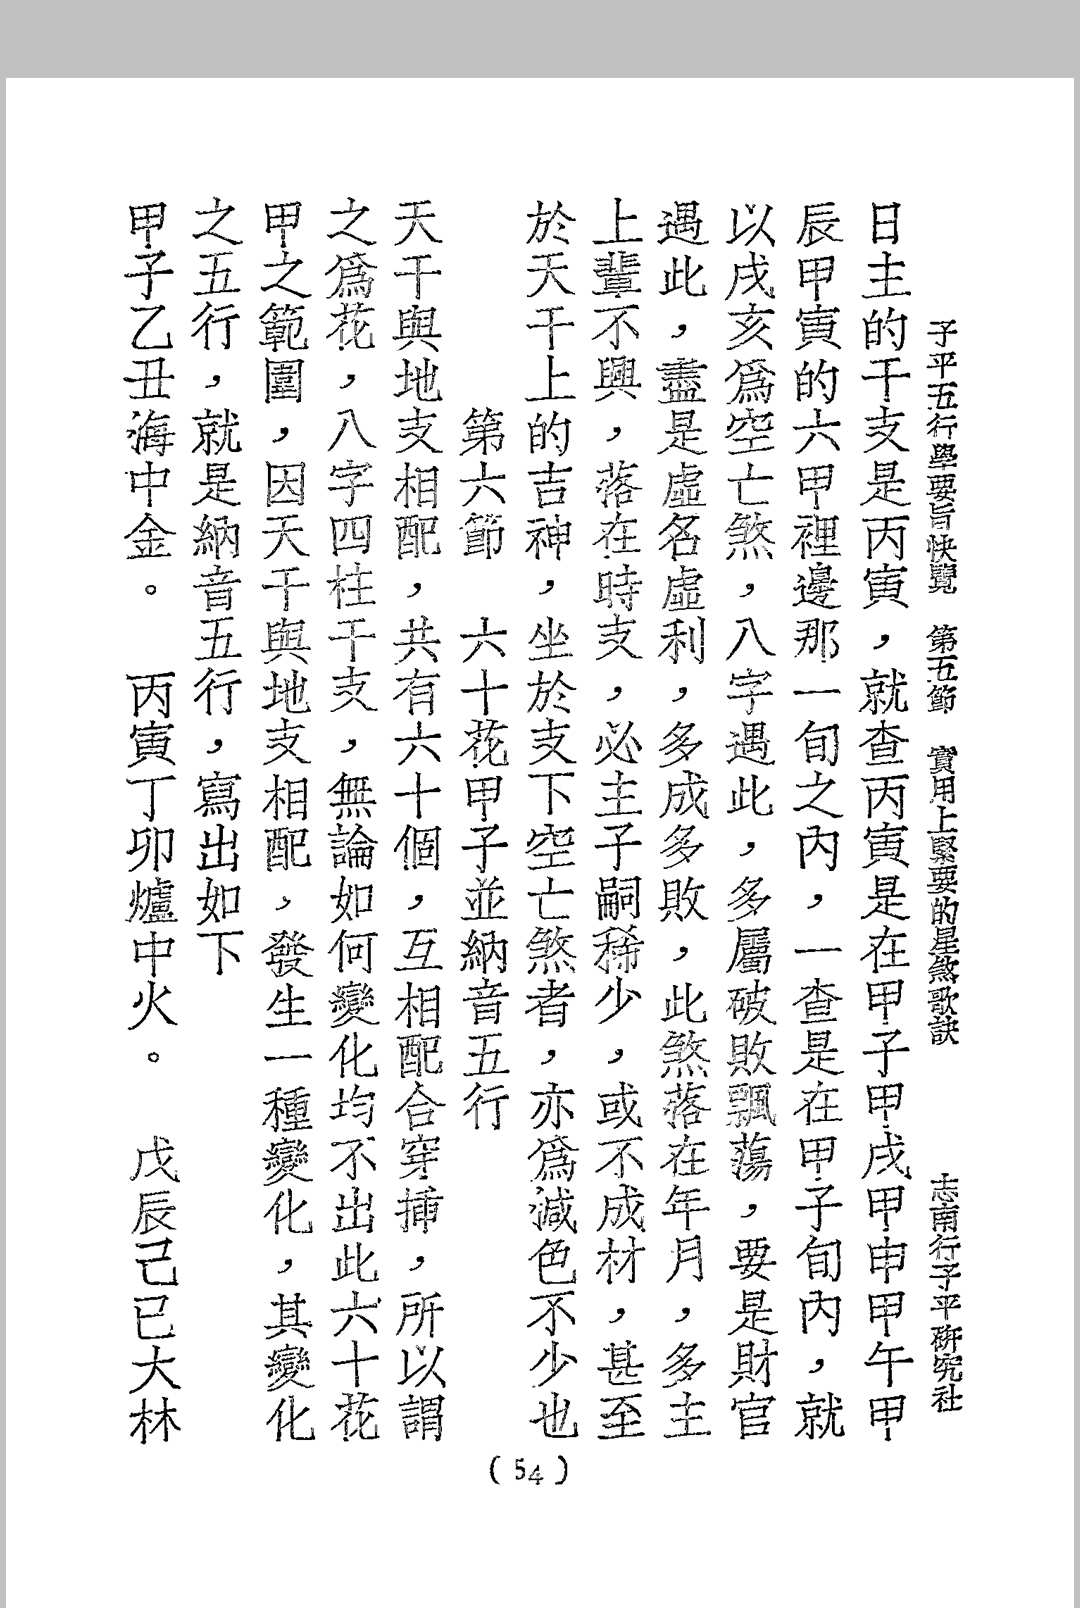 子平五行學要旨快覽　第五節　實用上緊要的星煞歌訣　志南行子平研究社
日主的干支是丙寅，就查丙寅是在甲子甲戌甲申甲午甲
辰甲寅的六甲裡邊那一旬之內，一查是在甲子旬內，就
以戌亥爲空亡煞，八字遇此，多屬破敗飄蕩，要是財官
遇此，盡是虛名虛利，多成多敗，此煞落在年月，多主
上輩不興，落在時支，必主子嗣稀少，或不成材，甚至
於天干上的吉神，坐於支下空亡煞者，亦爲減色不少也
第六節　六十花甲子並納音五行
天干與地支相配，共有六十個，互相配合穿挿，所以謂
之爲花，八字四柱干支，無論如何變化均不出此六十花
甲之範圍，因天干與地支相配，發生一種變化，其變化
之五行，就是納音五行，寫出如下
甲子乙丑海中金。　丙寅丁卯爐中火。　戊辰己巳大林
(54)